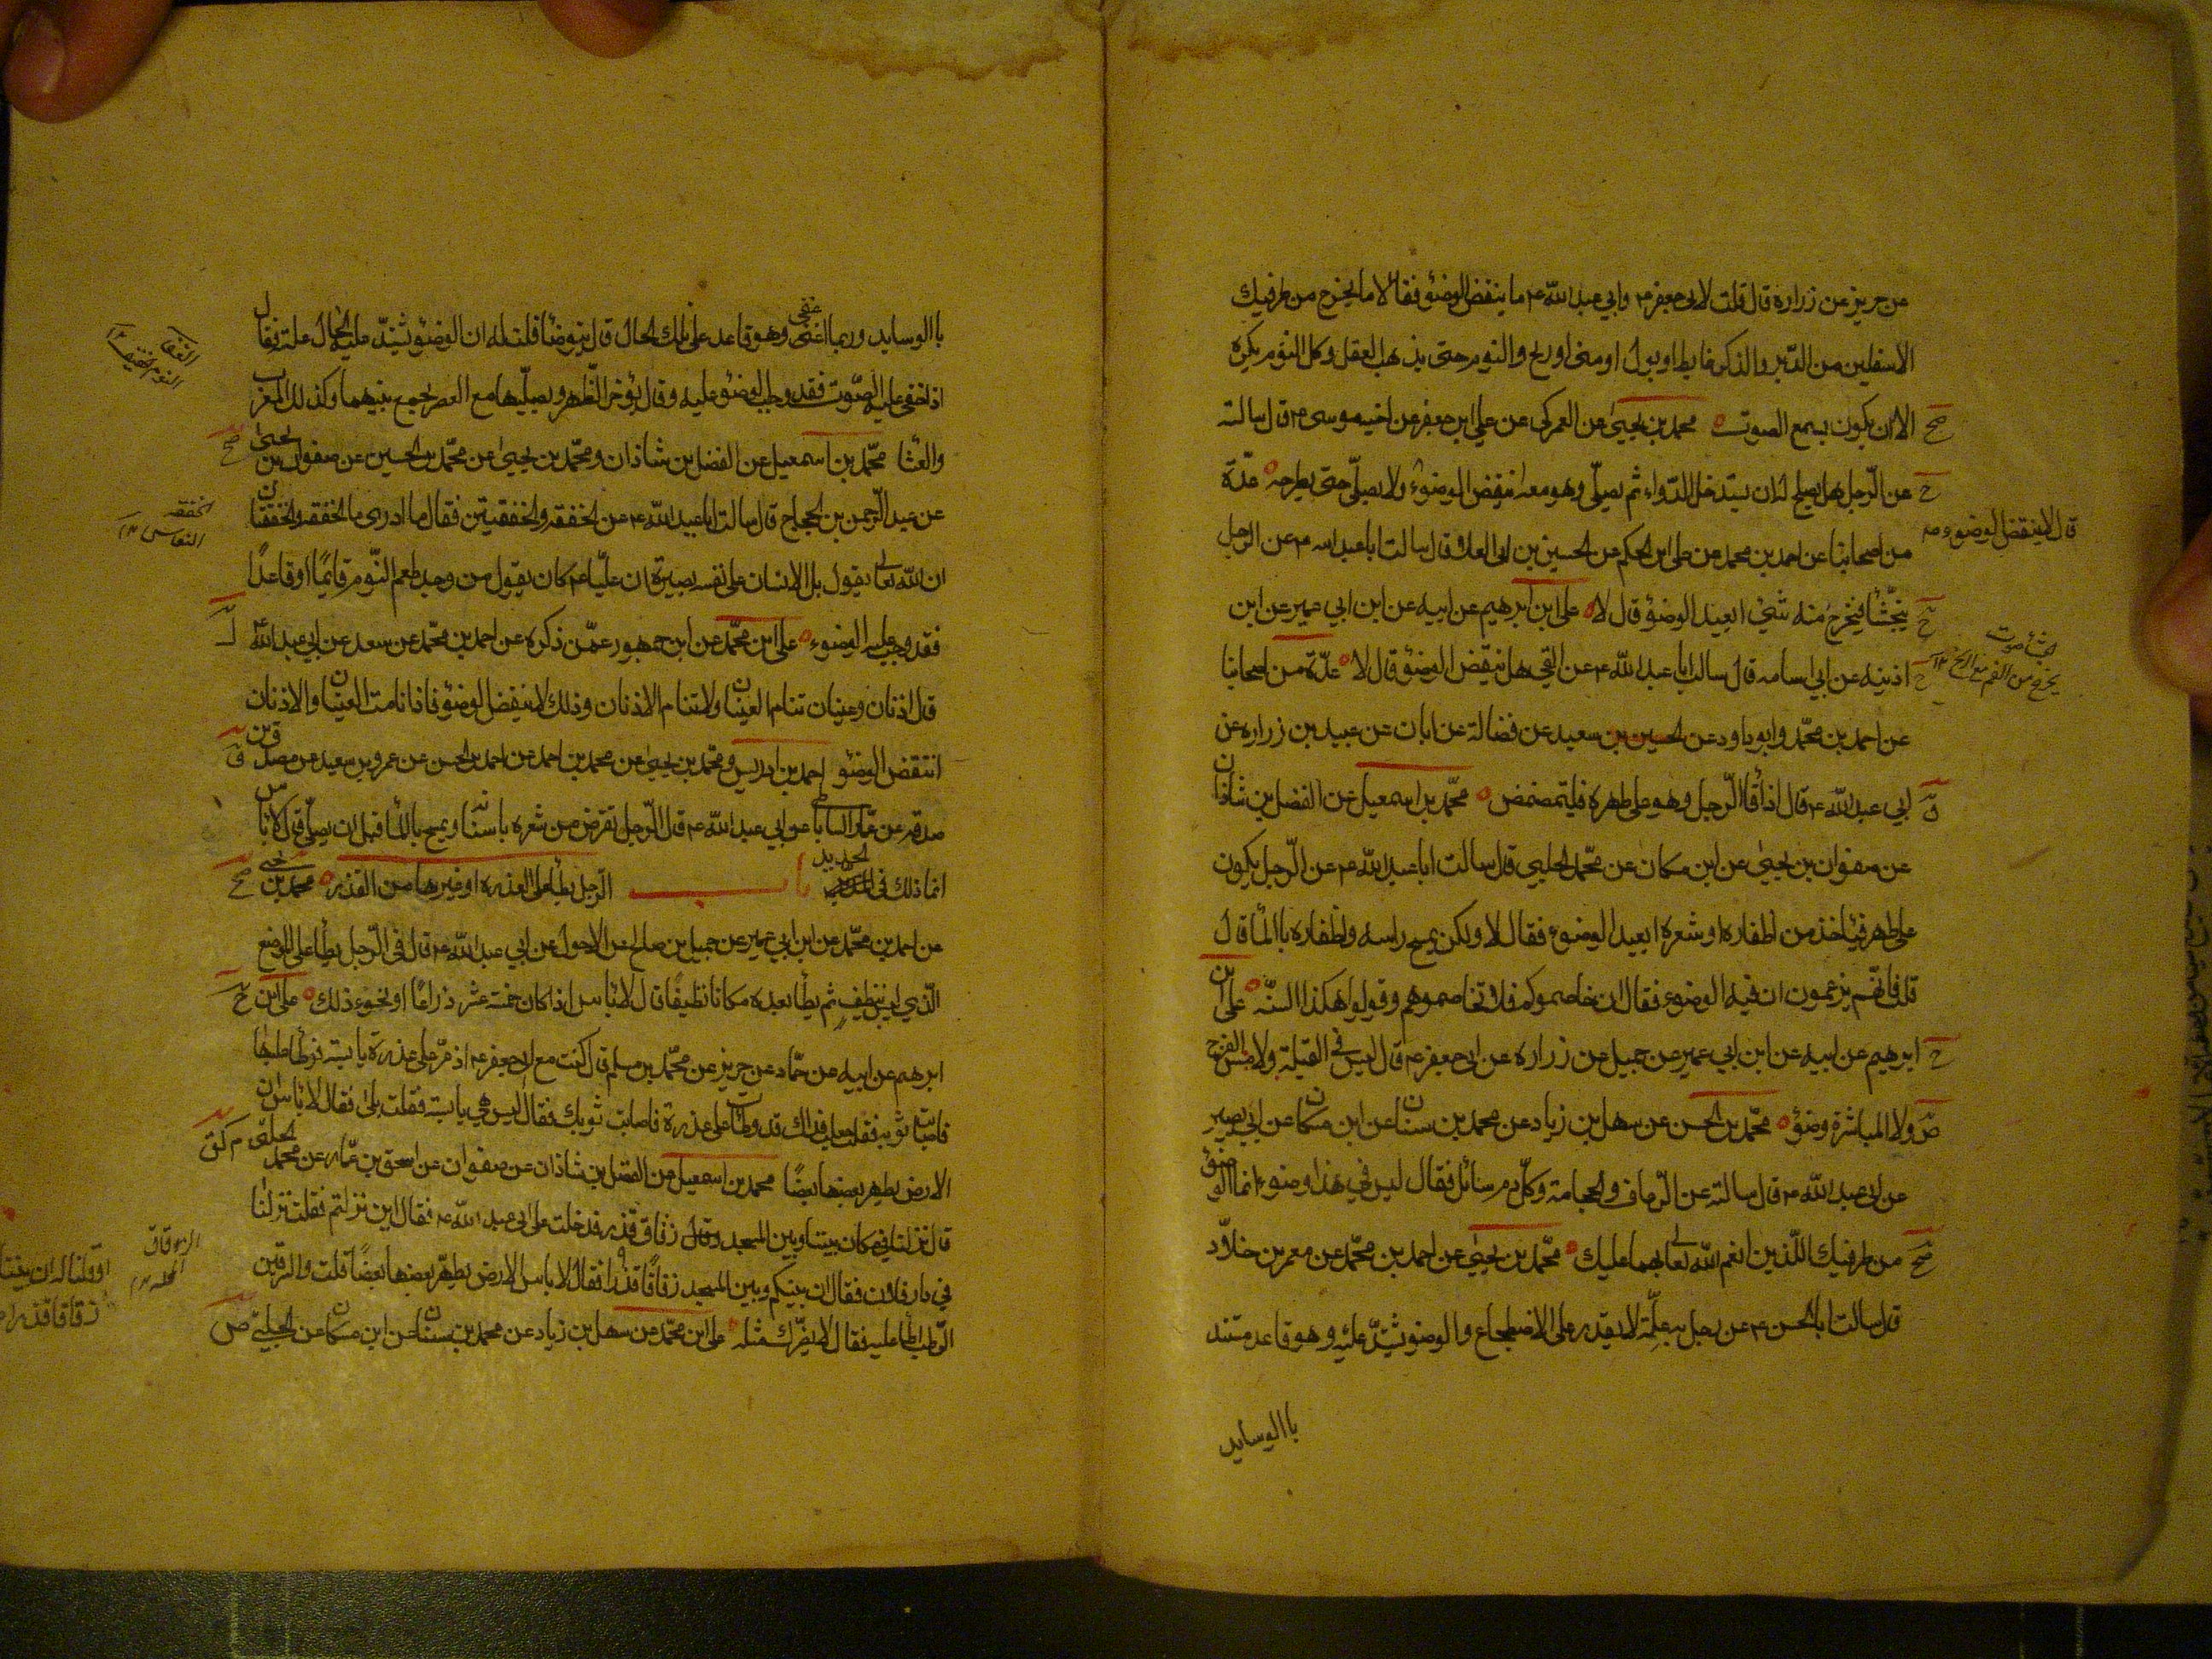 عن حريز عن زرارة قال قلت لابي جعفر ع وابي عبد الله ع ما ينقض الوضؤ فقالا ما يخرج من طرفيك
الاسفلين من الدبر والذكر غايط او بول او منى او ريح والنوم حتى يذهب العقل وكل النوم يكره
صح الا ان يكون يسمع الصوت محمد بن يحيى عن العمركى عن علي ابن جعفر عن اخيه موسى ع قال سالته
ح عن الرجل هل يصلح له ان يستدخل الدواء ثم يصلّي وهو معه اينقض الوضوء ولا يصلّي حتى يطرحه عدّة
قال لا ينقض الوضوء
من اصحابنا عن احمد بن محمد عن على ابن الحكم عن الحسين بن ابى العلا قال سالت ابا عبد الله ع عن الرجل
يتجشّأ فيخرج منه شئ ايعيد الوضؤ قال لا على ابن ابرهيم عن ابيه عن ابن ابي عمير عن ابن
يخرج من الفم مع الريح ١٢
اذينه عن ابي اسامه قال سالت ابا عبد الله ع عن القي هل ينقض الوضؤ قال لا عدّة من اصحابنا
عن احمد بن محمّد وابو داود عن الحسين بن سعيد عن فضالة عن ابان عن عبيد بن زراره عن
ابي عبد الله ع قال اذا قا الرجل وهو على طهره فليتمضمض محمّد بن اسمعيل عن الفضل بن شاذان
عن صفوان بن يحيى عن ابن مسكان عن محمّد الحلبي قال سالت ابا عبد الله ع عن الرّجل يكون
على طهر فيأخذ من اظفاره او شعره ايعيد الوضوء فقال لا ولكن يمسح راسه واظفاره بالمأ قال
قلت فانّهم يزعمون ان فيه الوضوء فقال ان خاصموكم فلا تخاصموهم وقولوا هكذا السنّه على ابن
ح ابرهيم عن ابيه عن ابن ابي عمير عن جميل عن زراره عن ابى جعفر ع قال ليس في القبلة ولا مس الفرج
ض ولا المباشرة وضؤ محمّد بن الحسن عن سهل بن زياد عن محمد بن سنان عن ابن مسكان عن ابي بصير
عن ابى عبد الله ع قال سالته عن الرّعاف والحجامة وكلّ دم سائل فقال ليس في هذا وضوء انما الوضؤ
صح من طرفيك اللّذين انعم الله تعالى بهما عليك محمّد بن يحيى عن احمد بن محمّد عن معمر بن خلاّد
قال سالت ابا الحسن ع عن رجل به علّة لا يقدر على الاضطجاع والوضؤ يشتدّ عليه وهو قاعد مستند
باالوسايد
باالوسايد وربما اغفى وهو قاعد على تلك الحال قال يتوضّأ قلت له ان الوضؤ يشتدّ عليه لحال علته فقال
اذا خفى عليه الصّوت فقد وجب الوضؤ عليه وقال يؤخر الظّهر ويصلّيها مع العصر يجمع بينهما وكذلك المغرب
والعشا محمّد بن اسمعيل عن الفضل بن شاذان ومحمّد بن يحيى عن محمّد بن الحسين عن صفوان بن يحيى صح
عن عبد الرّحمن بن الحجاج قال سالت ابا عبد الله ع عن الخفقه والخفقتين فقال ما ادرى ما الخفقه والخفقتان
الخفقه
النعاس ١٢
ان الله تعالى يقول بل الانسان على نفسه بصيرة ان عليّا ع كان يقول من وجد طعم النّوم قائمًا او قاعدًا
فقد وجب عليه الوضوء على ابن محمّد عن ابن جمهور عمّن ذكره عن احمد بن محمّد عن سعد عن ابي عبد الله
قال اذنان وعينان تنام العينان ولا تنام الاذنان وذلك لا ينقض الوضؤ فاذا نامت العينان والاذنان
انتقض الوضؤ احمد بن ادريس ومحمّد بن يحيى عن محمد بن احمد عن احمد بن الحسن عن عمرو بن سعيد عن مصدّق بن
صدقه عن عمّار الساباطى عن ابي عبد الله ع قال الرّجل يقرض من شعره باسنانه ايمسح بالمأ قبل ان يصلّى قال لا بأس
انما ذلك في الحديد باب الرّجل يطأ على العذره او غيرها من القذر محمد بن يحيى صح
عن احمد بن محمّد عن ابن ابي عمير عن جميل بن صالح عن الاحول عن ابي عبد الله ع قال في الرّجل يطأ على الموضع
الّذي ليس بنظيف ثم يطأ بعده مكانا نظيفًا قال لا بأس اذا كان خمسة عشر ذراعًا او نحو ذلك على ابن
ابرهيم عن ابيه عن حمّاد عن حريز عن محمّد بن مسلم قال كنت مع ابى جعفر ع اذ مرّ على عذرة يابسة فوطأ عليها
فاصابت ثوبه فقلت جعلت فداك قد وطأت على عذرة فاصابت ثوبك فقال اليس هي يابسة فقلت بلى فقال لا بأس ان
الارض يطهر بعضها بعضًا محمد بن اسمعيل عن الفضل بن شاذان عن صفوان عن اسحق بن عمّار عن محمد الحلبي
قال نزلنا في مكان بيننا وبين المسجد زقاق قذر فدخلت على ابى عبد الله ع فقال اين نزلتم فقلت نزلنا
الزقاق
المحلة ١٢
في دار فلان فقال ان بينكم وبين المسجد زقاقًا قذرًا فقال لا باس الارض يطهّر بعضها بعضًا قلت والسرقين
الرّطب اطأ عليه فقال لا يضرّك مثله على ابن محمّد عن سهل بن زياد عن محمد بن سنان عن ابن مسكان عن الحلبيّ ض